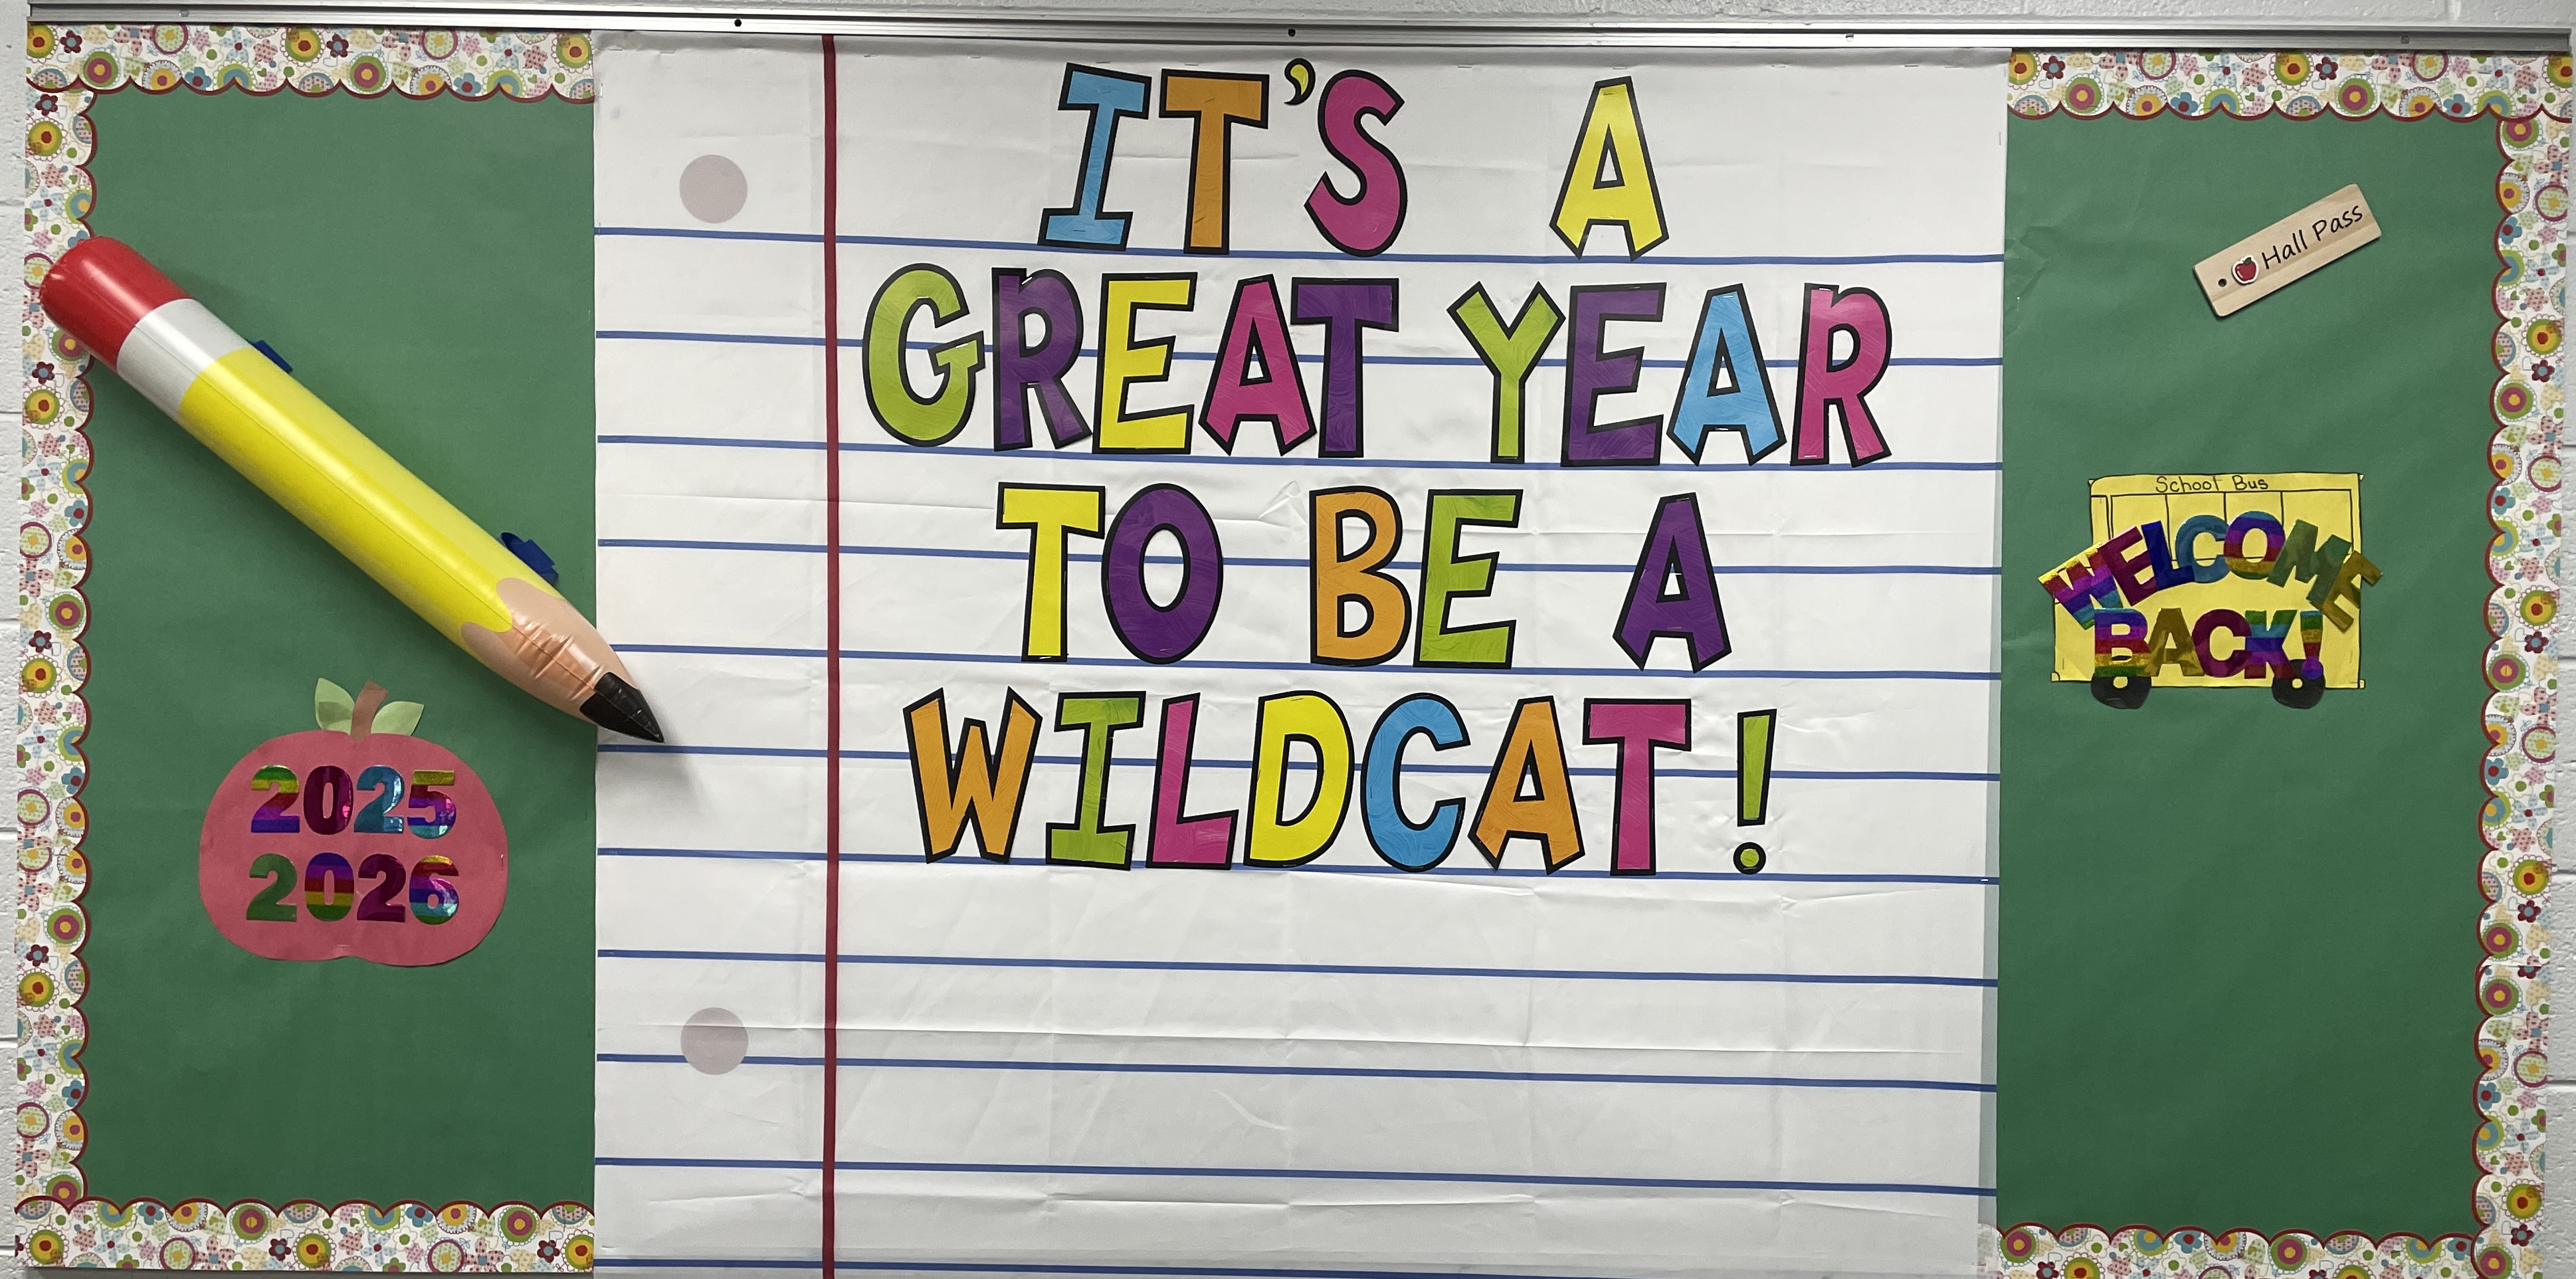 IT'S A
GREAT YEAR
TO BE A
WILDCAT!
2025
2026
Hall Pass
School Bus
WELCOME
BACK!